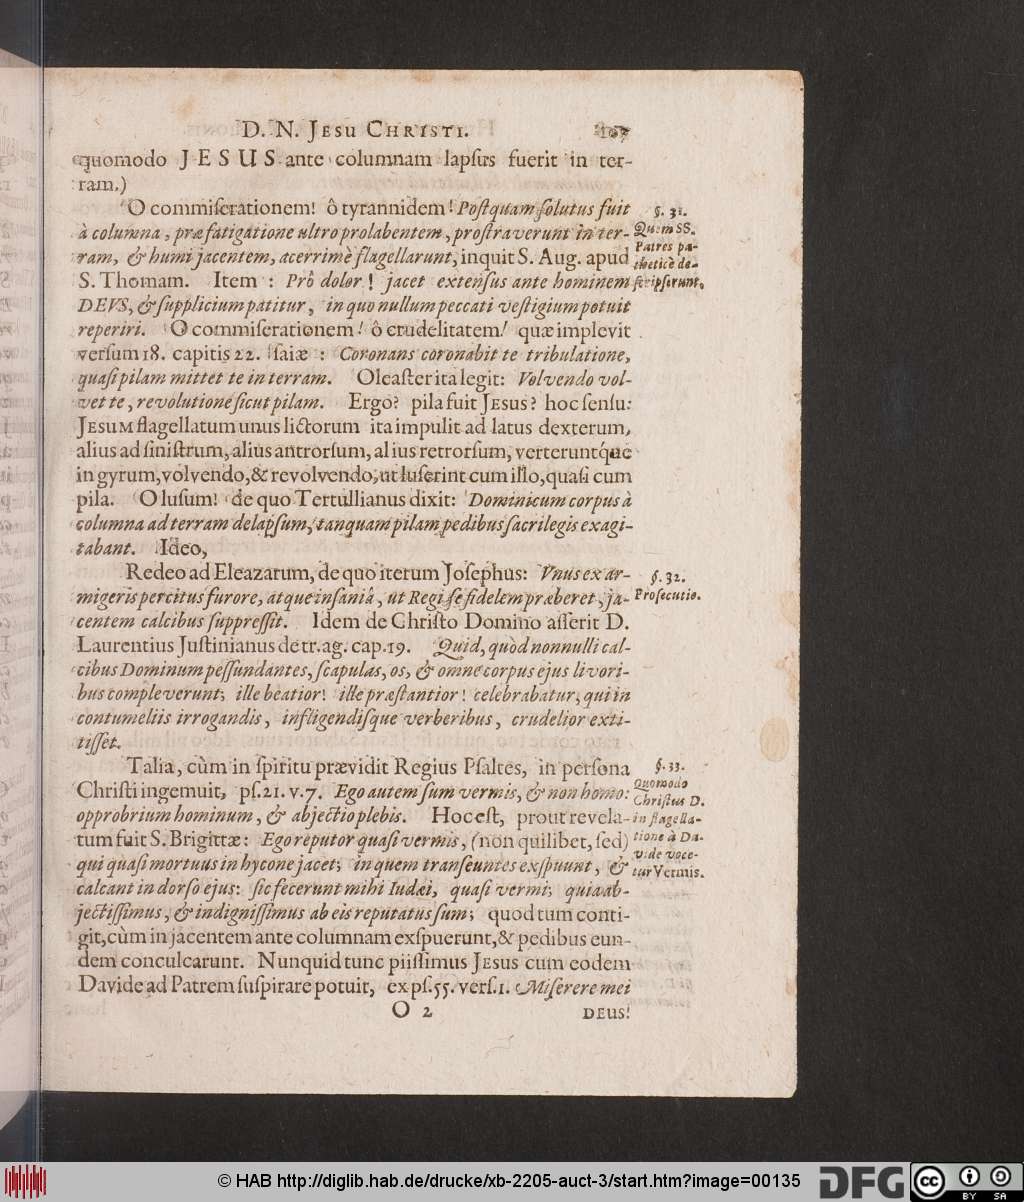 D. N. JESU CHRISTI. 107
quomodo JESUS ante columnam lapſus fuerit in ter-
ram.)
O commiſerationem! ô tyrannidem! Poſtquam ſolutus fuit
à columna, præ fatigatione ultro prolabentem, proſtraverunt in ter-
ram, & humi jacentem, acerrimè flagellarunt, inquit S. Aug. apud
S. Thomam. Item : Prô dolor! jacet extenſus ante hominem
DEVS, & ſupplicium patitur, in quo nullum peccati veſtigium potuit
reperiri. O commiſerationem! ô crudelitatem! quæ implevit
verſum 18. capitis 22. Iſaiæ : Coronans coronabit te tribulatione,
quaſi pilam mittet te in terram. Oleaſter ita legit: Volvendo vol-
vet te, revolutione ſicut pilam. Ergo? pila fuit JESUS? hoc ſenſu:
JESUM flagellatum unus lictorum ita impulit ad latus dexterum,
alius ad ſiniſtrum, alius antrorſum, alius retrorſum, verteruntq́ue
in gyrum, volvendo, & revolvendo, ut luſerint cum illo, quaſi cum
pila. O luſum! de quo Tertullianus dixit: Dominicum corpus à
columna ad terram delapſum, tanquam pilam pedibus ſacrilegis exagi-
tabant. Ideo,
Redeo ad Eleazarum, de quo iterum Joſephus: Vnus ex ar-
migeris percitus furore, atque inſaniâ, ut Regi ſe fidelem præberet, ja-
centem calcibus ſuppreſſit. Idem de Chriſto Domino aſſerit D.
Laurentius Juſtinianus de tr. ag. cap. 19. Quid, quòd nonnulli cal-
cibus Dominum peſſundantes, ſcapulas, os, & omne corpus ejus livori-
bus compleverunt; ille beatior! ille præſtantior! celebrabatur, qui in
contumeliis irrogandis, infligendiſque verberibus, crudelior exti-
tiſſet.
Talia, cùm in ſpiritu prævidit Regius Pſaltes, in perſona
Chriſti ingemuit, pſ. 21. v. 7. Ego autem ſum vermis, & non homo:
opprobrium hominum, & abjectio plebis. Hoc eſt, prout revela-
tum fuit S. Brigittæ: Ego reputor quaſi vermis, (non quilibet, ſed)
qui quaſi mortuus in hycone jacet; in quem tranſeuntes exſpuunt, &
calcant in dorſo ejus: ſic fecerunt mihi Iudæi, quaſi vermi; quia ab-
jectiſſimus, & indigniſſimus ab eis reputatus ſum; quod tum conti-
git, cùm in jacentem ante columnam exſpuerunt, & pedibus eun-
dem conculcarunt. Nunquid tunc piiſſimus JESUS cum eodem
Davide ad Patrem ſuſpirare potuit, ex pſ. 55. verſ. 1. Miſerere mei
O 2 DEUS!
§. 31.
Quem SS.
Patres pa-
theticè de-
ſcripſerunt.
§. 32.
Proſecutio.
§. 33.
Quomodo
Chriſtus D.
in flagella-
tione à Da-
vide voce-
tur Vermis.
© HAB http://diglib.hab.de/drucke/xb-2205-auct-3/start.htm?image=00135
DFG
cc
BY SA